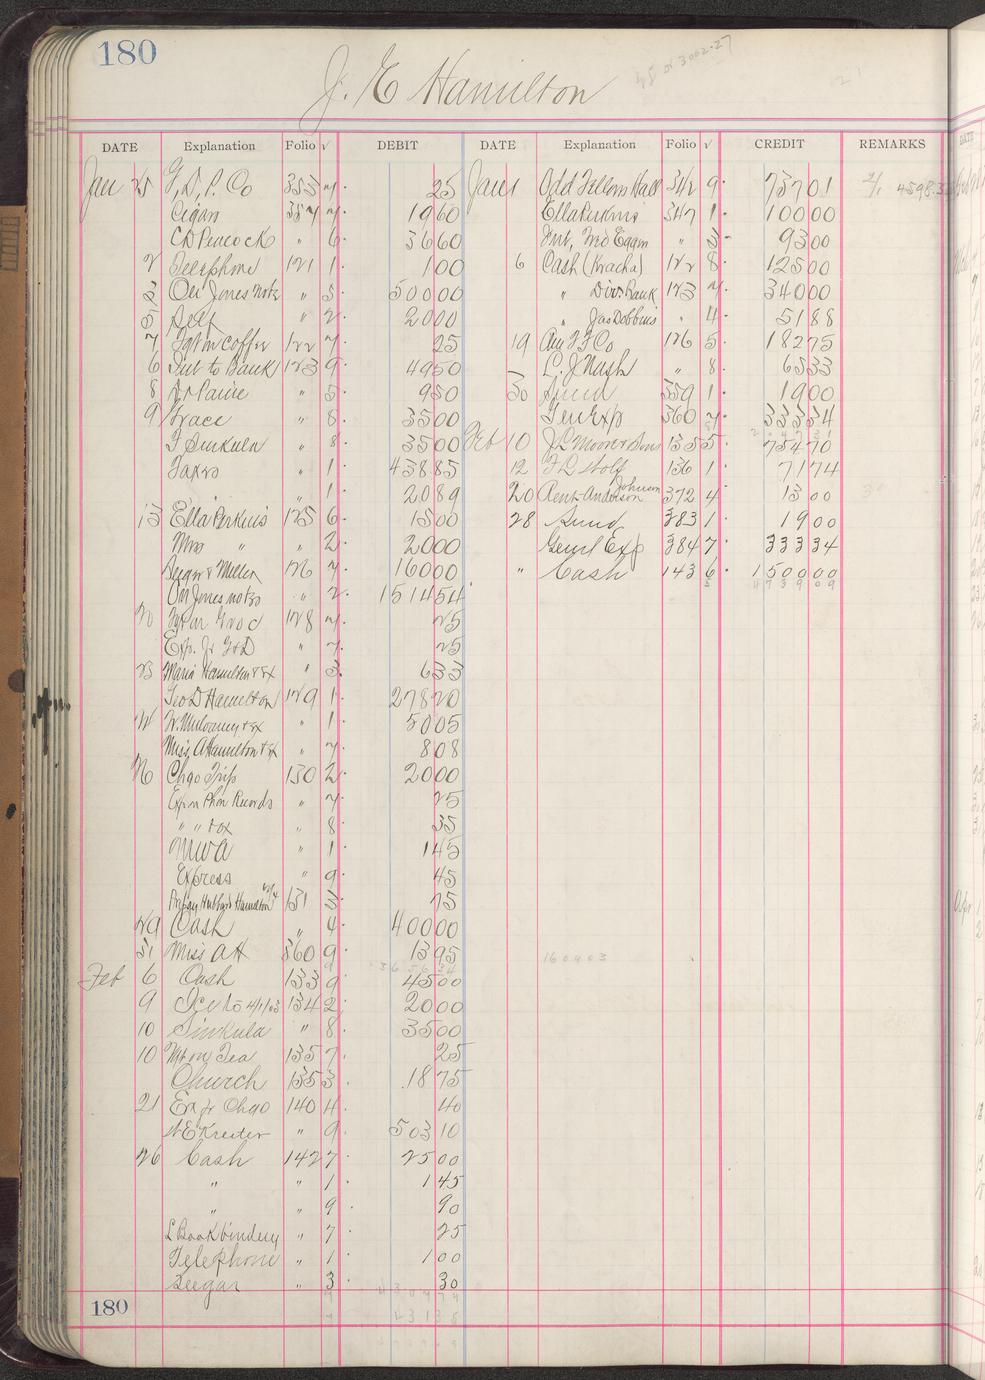 180
J. E Hamilton
DATE Explanation Folio √ DEBIT DATE Explanation Folio √ CREDIT REMARKS
Jan 25 Co 353 7 25 Jan 1 Odd Fellows Hall 342 9 737 01
Cigars 357 7 19 60 Ella Perkins 347 1 100 00
C D Peacock " 6 36 60 Int, " 3 93 00
2 Telephone 121 1 1 00 6 Cash (Kracha) 122 8 125 00
2 Oli Jones note " 5 500 00 " Div. Bank 123 7 340 00
5 Self " 2 20 00 " Jas Dobbins " 4 51 88
7 Ft on Coffee 122 7 25 19 Am T F Co 126 5 182 75
6 Int to Bank 123 9 49 50 L. J Nash " 8 65 33
8 Dr Paine " 5 9 50 30 Sund 359 1 19 00
9 Grace " 8 35 00 Gen Exp 360 7 333 34
F Sinkula " 8 35 00 Feb 10 J L Moore & Sons 135 5 754 70
Taxes " 1 438 85 12 136 1 71 74
" 1 20 89 20 Rent Anderson Johnson 372 4 13 00
13 Ella Perkins 125 6 15 00 28 Sund 383 1 19 00
Mrs " " 2 20 00 Genl Exp 384 7 333 34
Seegar & Miller 126 7 160 00 " Cash 143 6 1500 00
Oli Jones notes " 2 1514 54
20 128 7 25
" 7 25
23 Maria Hamilton & Ex " 3 6 33
Geo D Hamilton 129 1 278 20
W. & Ex " 1 50 05
Miss A Hamilton & Ex " 7 8 08
26 Chgo Trip 130 2 20 00
Exp on Phon Records " 7 25
" " " 8 35
MWA " 1 1 45
Express " 9 45
Hubbard Hamilton 131 3 75
29 Cash " 4 400 00
31 Miss AH 360 9 13 95
160903
Feb 6 Cash 133 9 45 00
9 Ice to 4/1/03 134 2 20 00
10 Sinkula " 8 35 00
10 Ft on Tea 135 7 25
Church 135 3 18 75
21 Ex Chgo 140 4 40
Kreiter " 9 503 10
26 Cash 142 7 25 00
" " 1 1 45
" " 9 90
L Bookbindery " 7 25
Telephone " 1 1 00
Seegar " 3 30
180